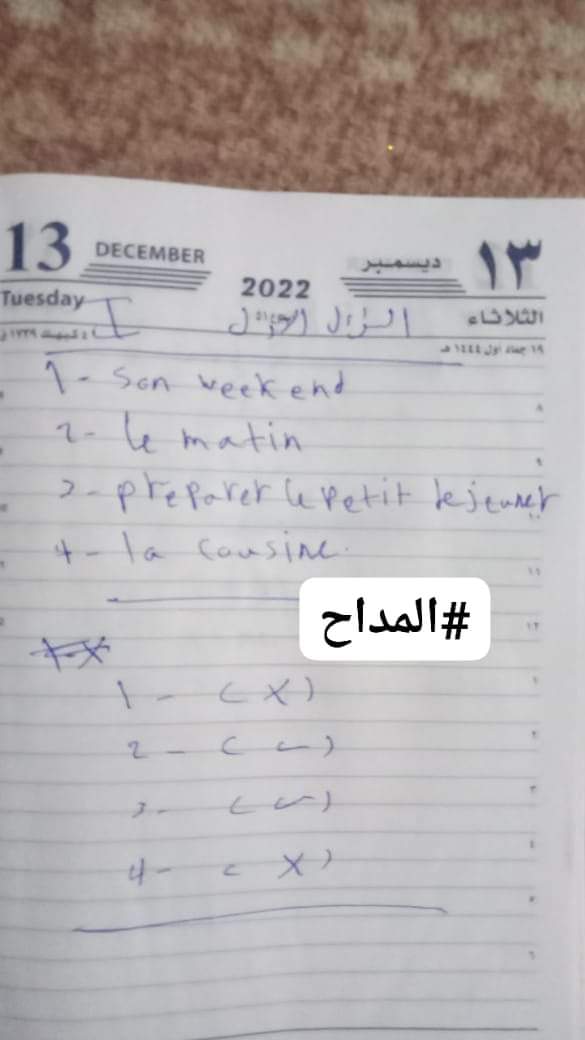 13 DECEMBER 2022 ديسمبر ١٣
Tuesday الثلاثاء
I السؤال الاول
١٩ جماد أول ١٤٤٤ هـ
1- Son weekend
2- le matin
3- preparer le petit dejeuner
4- la cousine.
#المداح
1 - (X)
2 - (✓)
3 - (✓)
4 - (X)